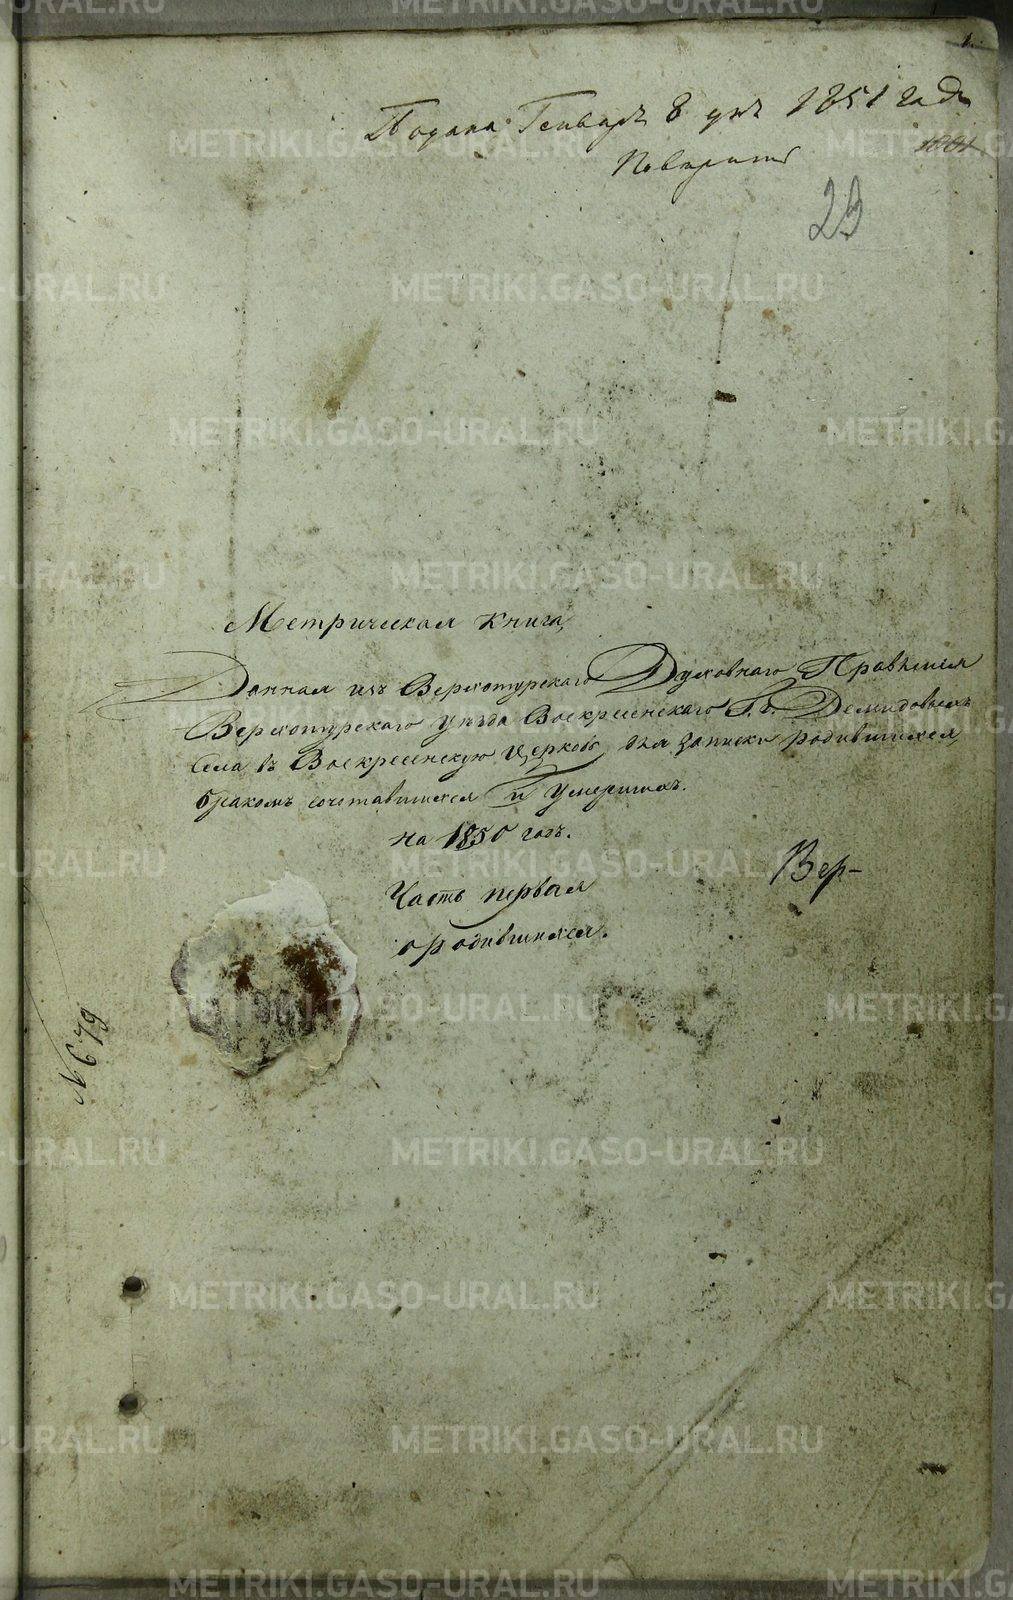 1.
Подана Генваря 8 дня 1851 года
Поверить
1001
23
Метрическая книга,
Данная изъ Верхотурскаго Духовнаго Правленія
Верхотурскаго уѣзда Воскресенскаго Г. Г. Демидовыхъ
села въ Воскресенскую церковь, для записки родившихся,
бракомъ сочетавшихся и умершихъ.
на 1850 годъ.
Вер-
Часть первая
о родившихся.
№ 679
METRIKI.GASO-URAL.RU